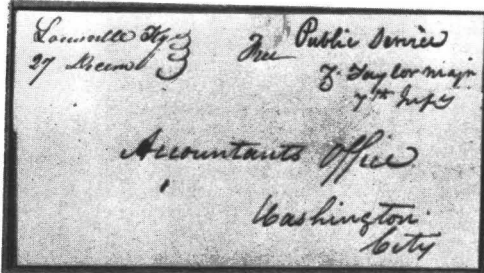 Louisville Ky
27 Decem
Free
Public Service
Z. Taylor majr
7th Infty
Accountants Office
Washington
City